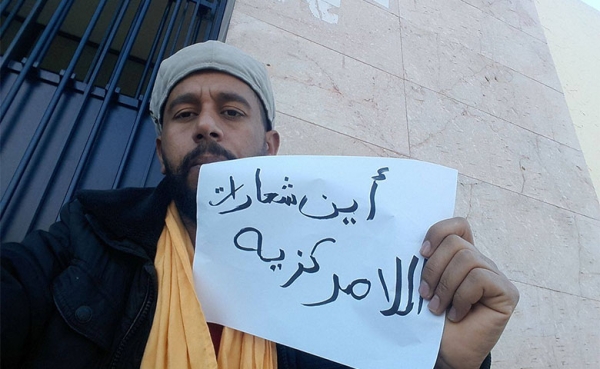 أين شعارات
اللامركزيه